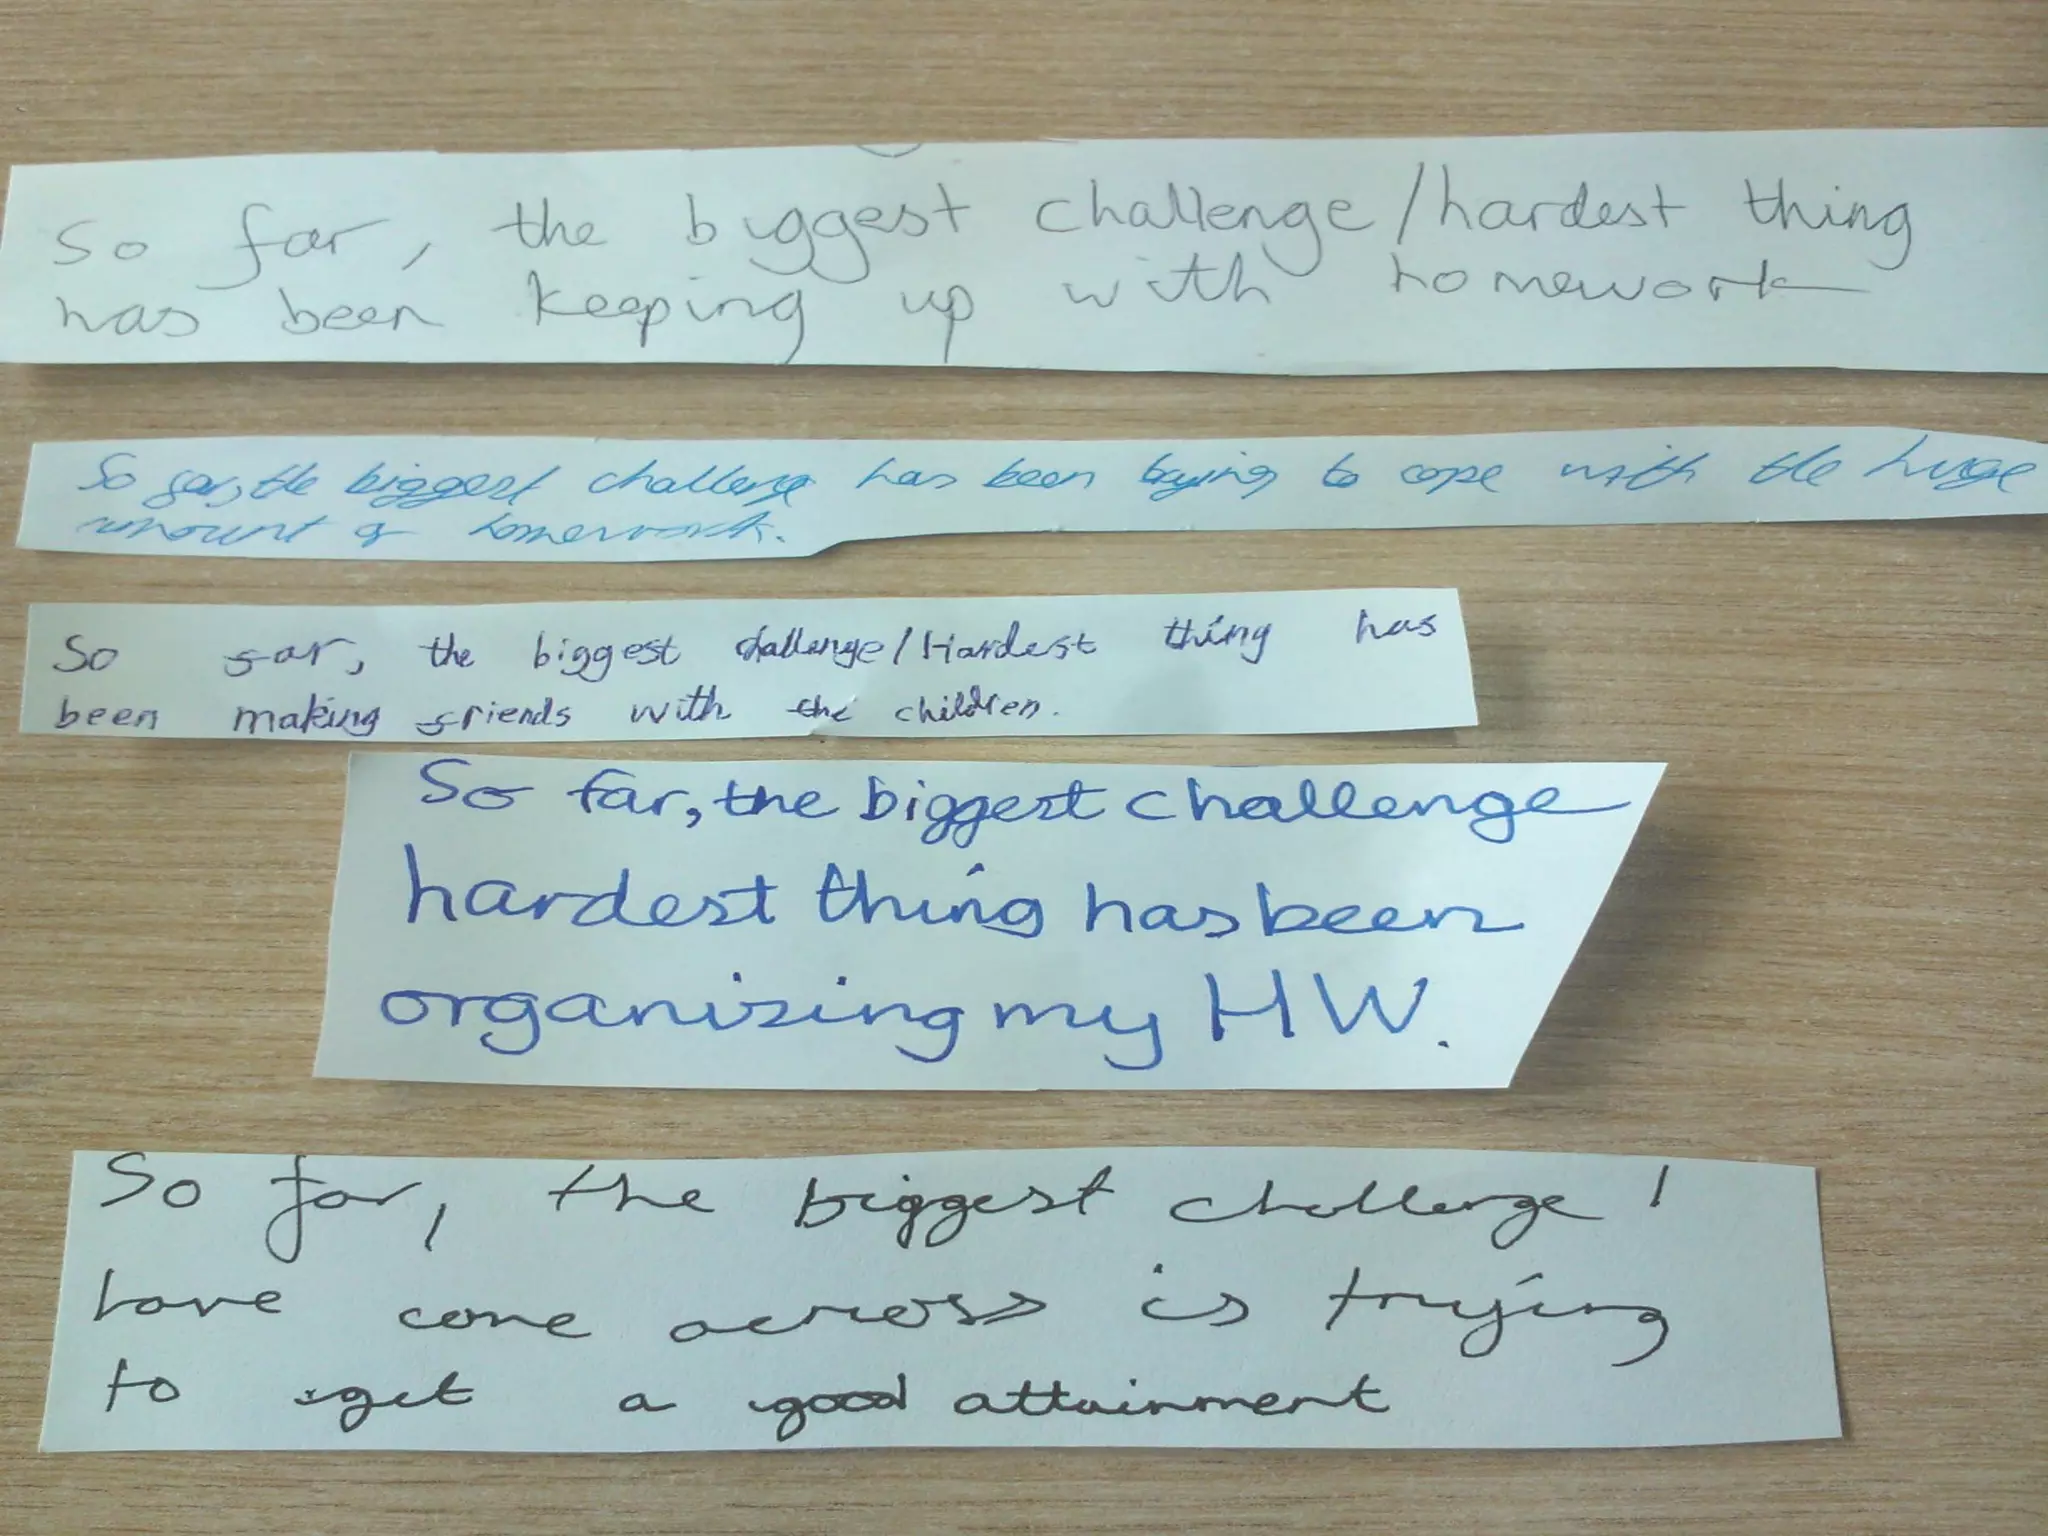 So far, the biggest challenge/hardest thing
has been keeping up with homework
So far, the biggest challenge has been trying to cope with the huge
amount of homework.
So far, the biggest challenge/Hardest thing has
been making friends with the children.
So far, the biggest challenge
hardest thing has been
organizing my HW.
So far, the biggest challenge I
have come across is trying
to get a good attainment